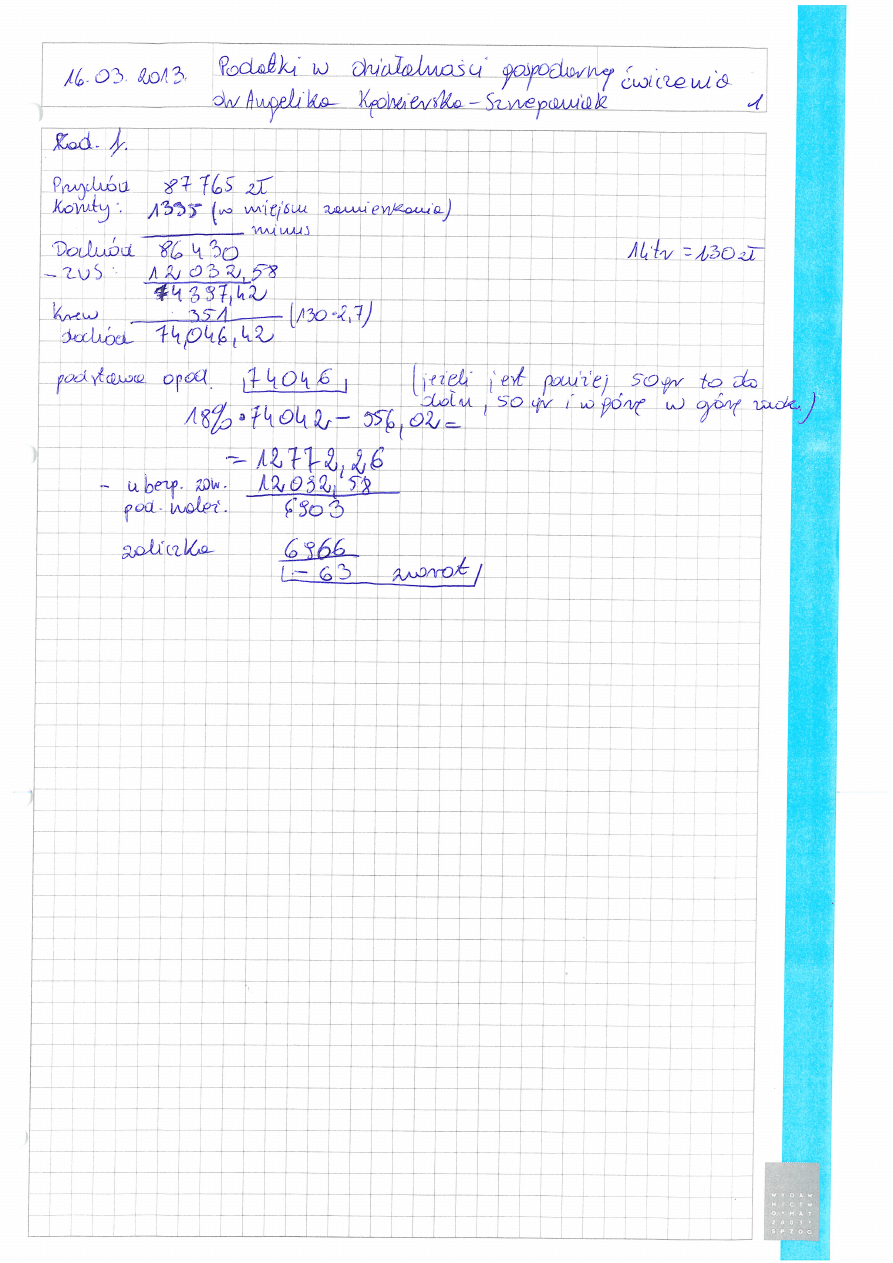 16.03.2013. Podatki w działalności gospodarczej ćwiczenia
dr Angelika Kędzierska-Szczepaniak 1
Zad. 1.
Przychód 87 765 zł
Koszty: 1335 (w miejscu zamieszkania)
minus
Dochód 86 430 1 litr = 130 zł
- ZUS: 12 032,58
74 397,42
Krew 351 (130·2,7)
dochód 74,046,42
podstawa opod. 74046 (jeżeli jest poniżej 50 gr to do
dołu, 50 gr i w górę w górę zaokr.)
18% · 74042 - 556,02 =
= 12772,26
- ubezp. zdr.
pod. należ. 6903
zaliczka 6966
- 63 zwrot